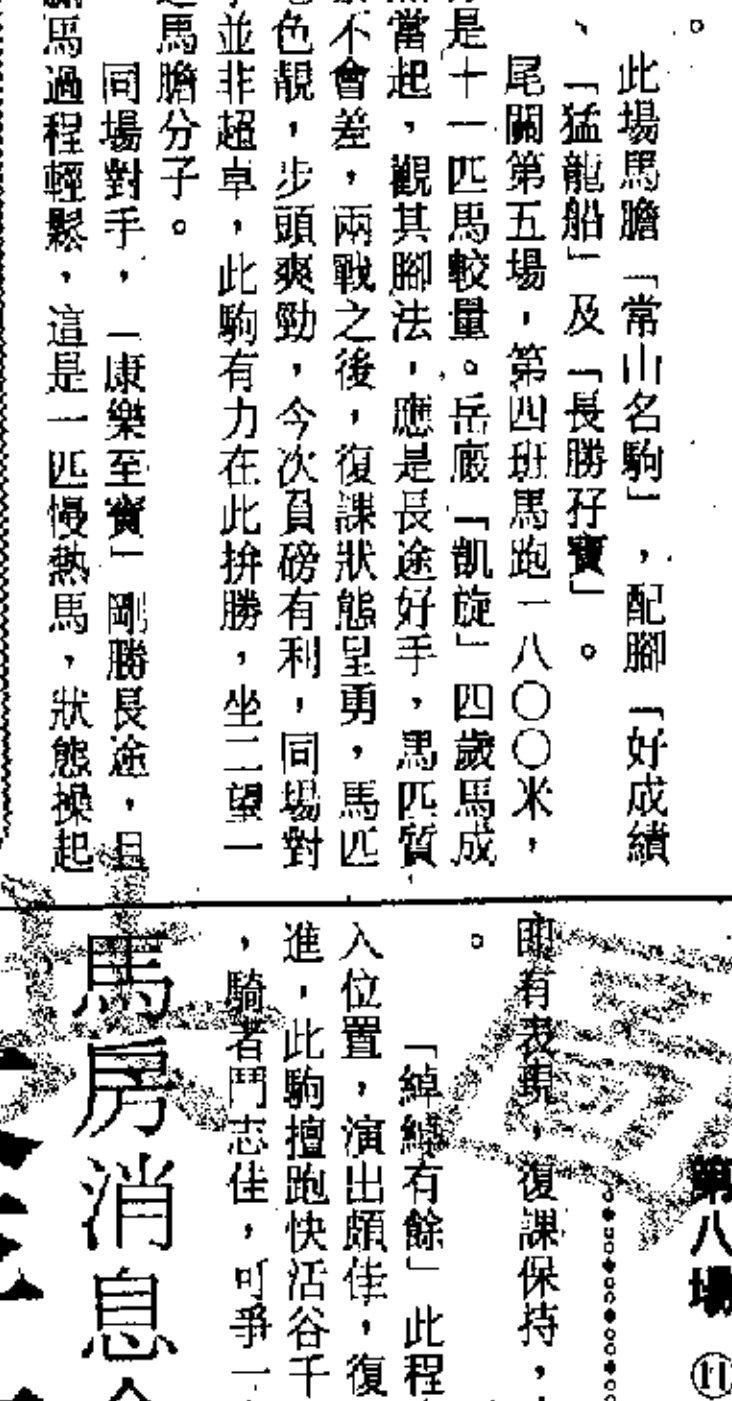 。
此場馬膽「常山名駒」，配腳「好成績
、「猛龍船」及「長勝孖寶」。
尾關第五場，第四班馬跑一八〇〇米，
是十一匹馬較量。岳廄「凱旋」四歲馬成
當起，觀其腳法，應是長途好手，馬匹質
不會差，兩戰之後，復課狀態呈勇，馬匹
色靚，步頭爽勁，今次負磅有利，同場對
並非超卓，此駒有力在此拚勝，坐二望一
馬膽分子。
同場對手，「康樂至寶」剛勝長途，且
馬過程輕鬆，這是一匹慢熱馬，狀態操起
第八場 ⑪
即有表現，復課保持，
。
「綽綽有餘」此程
入位置，演出頗佳，復
進，此駒擅跑快活谷千
，騎者鬥志佳，可爭一
馬房消息